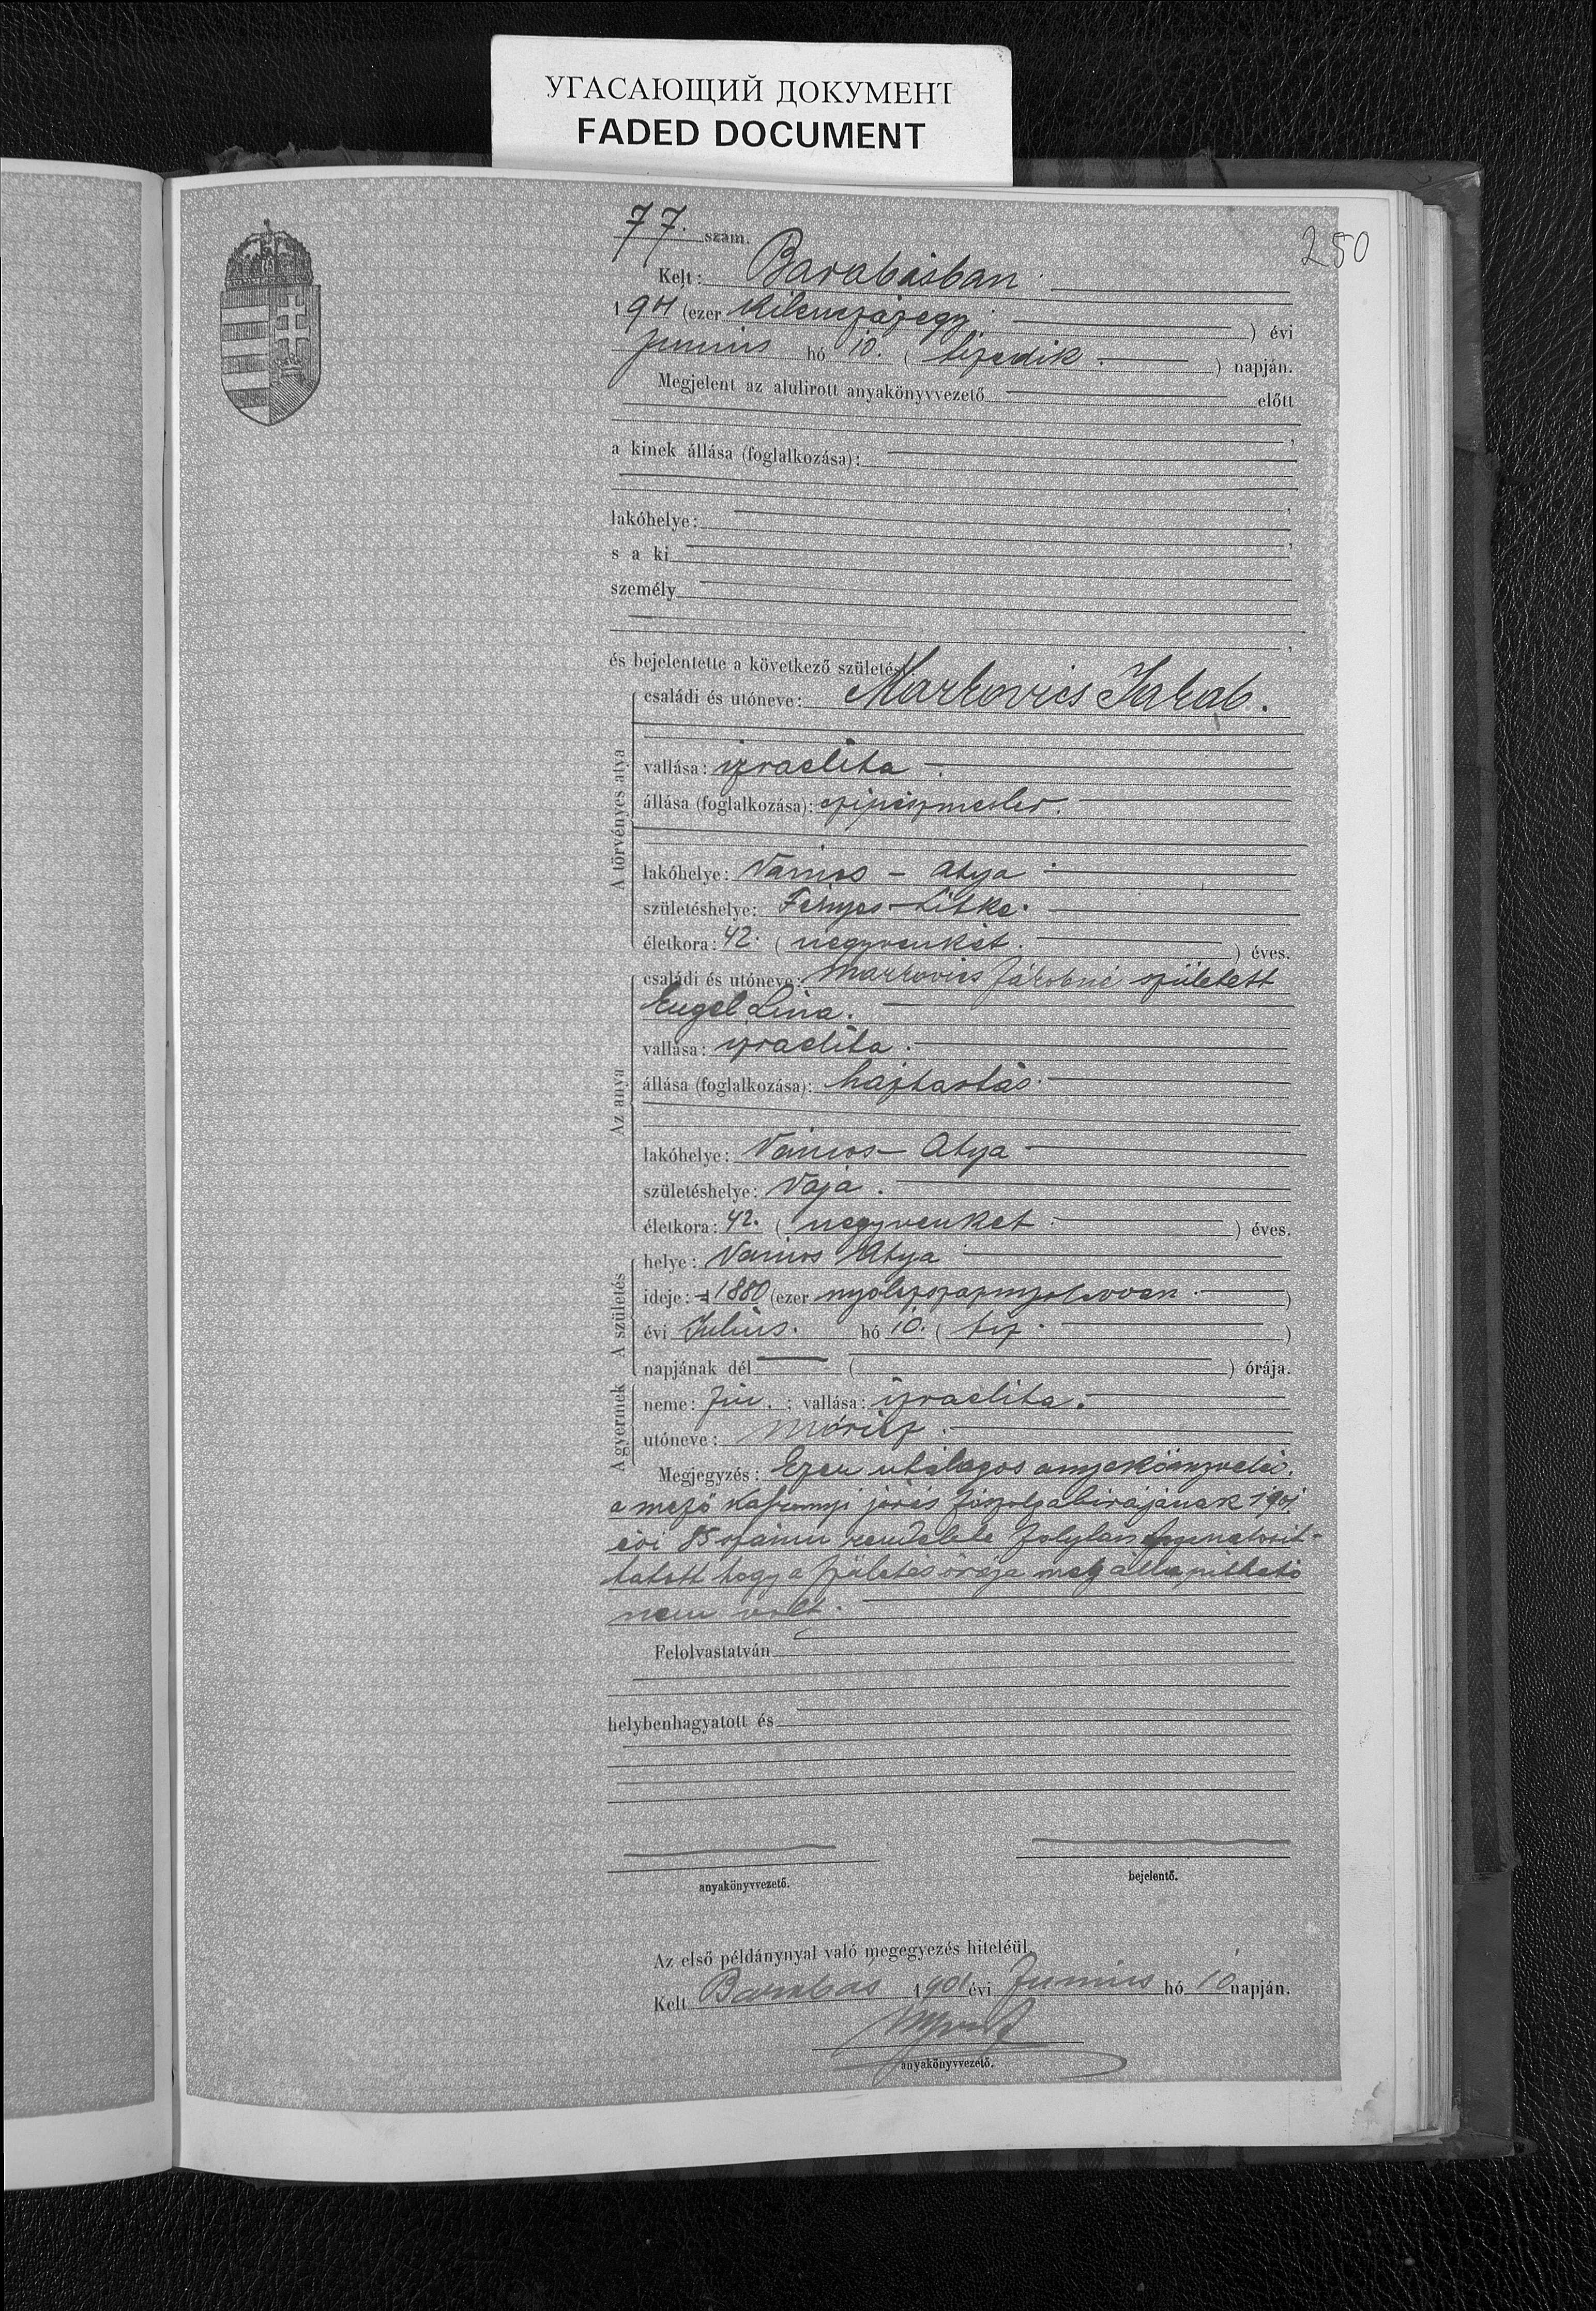 УГАСАЮЩИЙ ДОКУМЕНТ
FADED DOCUMENT
250
77. szám.
Kelt: Barabásban
1901 (ezer kilenczszázegy) évi
Junius hó 10. (tizedik.) napján.
Megjelent az alulirott anyakönyvvezető előtt
,
a kinek állása (foglalkozása):
,
lakóhelye: ,
s a ki
személy
,
és bejelentette a következő születést
A törvényes atya
családi és utóneve: Markovics Jakab.
vallása: izraelita.
állása (foglalkozása): czipészmester.
lakóhelye: Vámos-Atya
születéshelye: Fényes-Litke.
életkora: 42. (negyvenkét.) éves.
Az anya
családi és utóneve: Markovics Jákobné született
Engel Lina.
vallása: izraelita.
állása (foglalkozása): háztartás.
lakóhelye: Vámos-Atya
születéshelye: Vaja.
életkora: 42. (negyvenket.) éves.
A születés
helye: Vámos Atya
ideje: 1880 (ezer nyolczszáznyolczvan.)
évi Julius. hó 10. (tiz.)
napjának dél ( ) órája.
A gyermek
neme: fiu.; vallása: izraelita.
utóneve: Móricz.
Megjegyzés: Ezen utólagos anyakönyvelés.
a mező kaszonyi járás főszolgabirájának 1901
évi 85 számu rendelete folytán
hogy a születés órája megállapitható
nem volt.
Felolvastatván
helybenhagyatott és
anyakönyvvezető.
bejelentő.
Az első példánynyal való megegyezés hiteléül.
Kelt Barabás 1901 évi Junius hó 10 napján.
anyakönyvvezető.